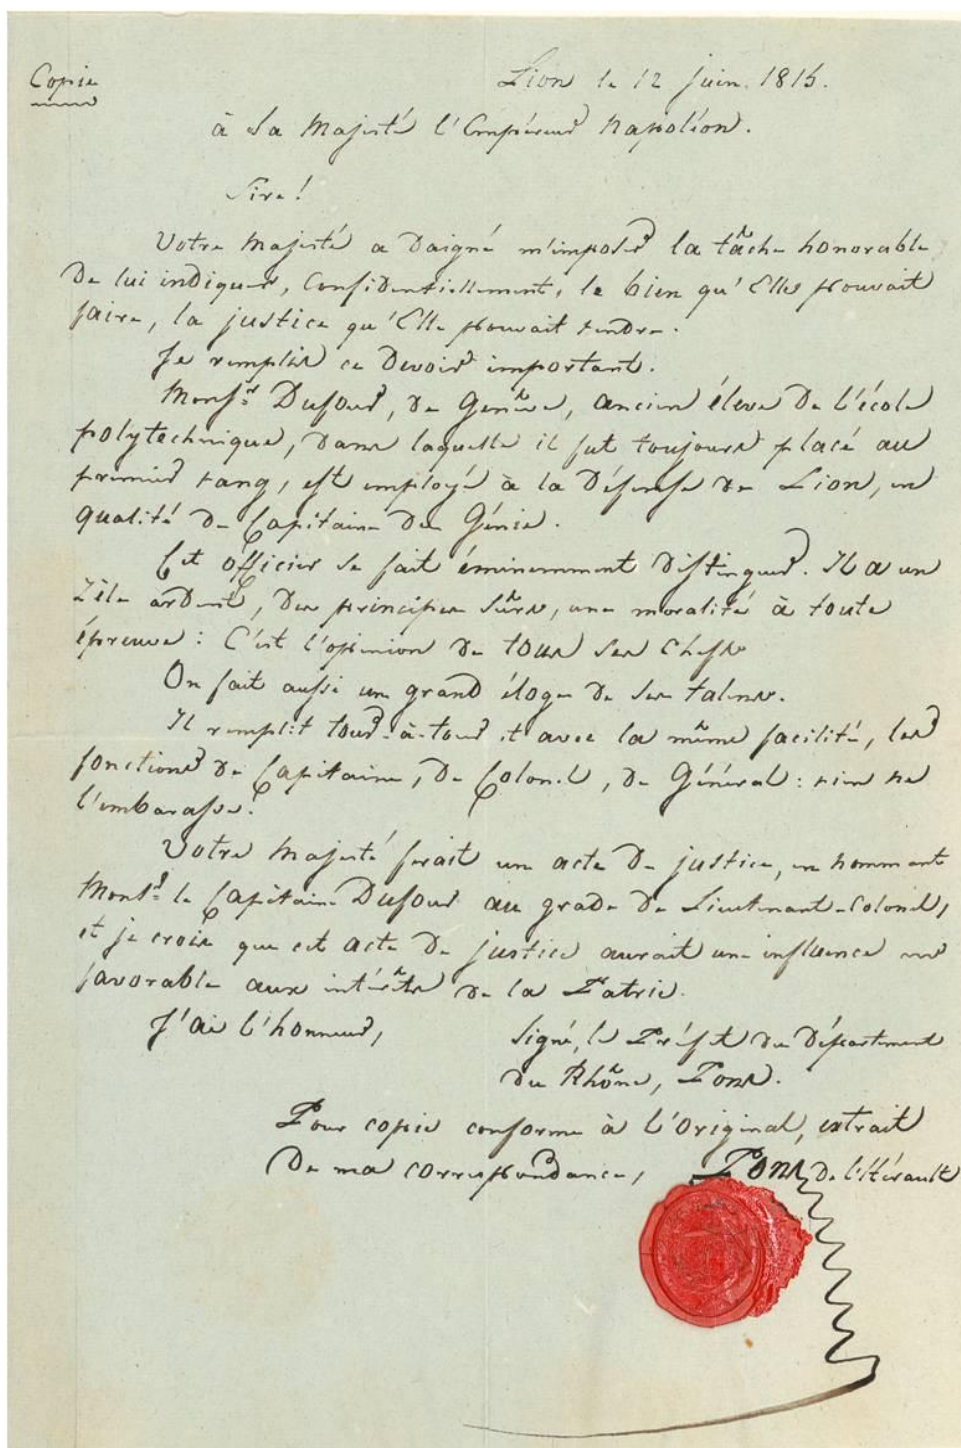 Copie
Lion le 12 juin. 1815.
à Sa Majesté l'Empéreur Napoléon.
Sire!
Votre Majesté a daigné m'imposer la tâche honorable
de lui indiquer, confidentiellement, le bien qu'Elle pouvait
faire, la justice qu'Elle pouvait rendre.
Je remplis ce devoir important.
Monsr. Dufour, de Genève, ancien élève de l'école
polytechnique, dans laquelle il fut toujours placé au
premier rang, est employé à la défense de Lion, en
qualité de Capitaine du Génie.
Cet officier se fait éminemment distinguer. Il a un
zèle ardent, des principes sûrs, une moralité à toute
épreuve: C'est l'opinion de tous ses Chefs
On fait aussi un grand éloge de ses talens.
Il remplit tour-à-tour et avec la même facilité, les
fonctions de Capitaine, de Colonel, de Général: rien ne
l'embarasse.
Votre Majesté ferait un acte de justice, en nommant
Monsr. le Capitaine Dufour au grade de Lieutenant-Colonel,
et je crois que cet acte de justice aurait une influence
favorable aux intérêts de la Patrie.
J'ai l'honneur,
Signé, le Préfet du département
du Rhône, Pons.
Pour copie conforme à l'Original, extrait
de ma correspondance, Pons de l'Hérault